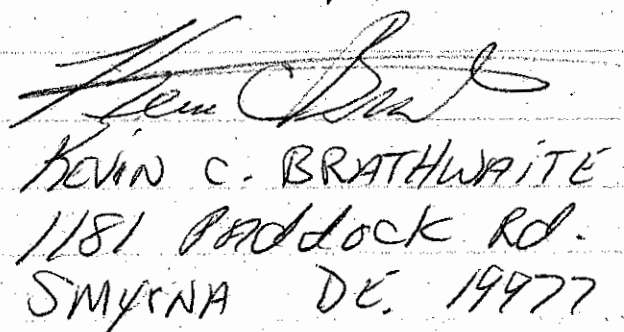 Kevin C. BRATHWAITE
1181 Paddock Rd.
SMYRNA DE. 19977